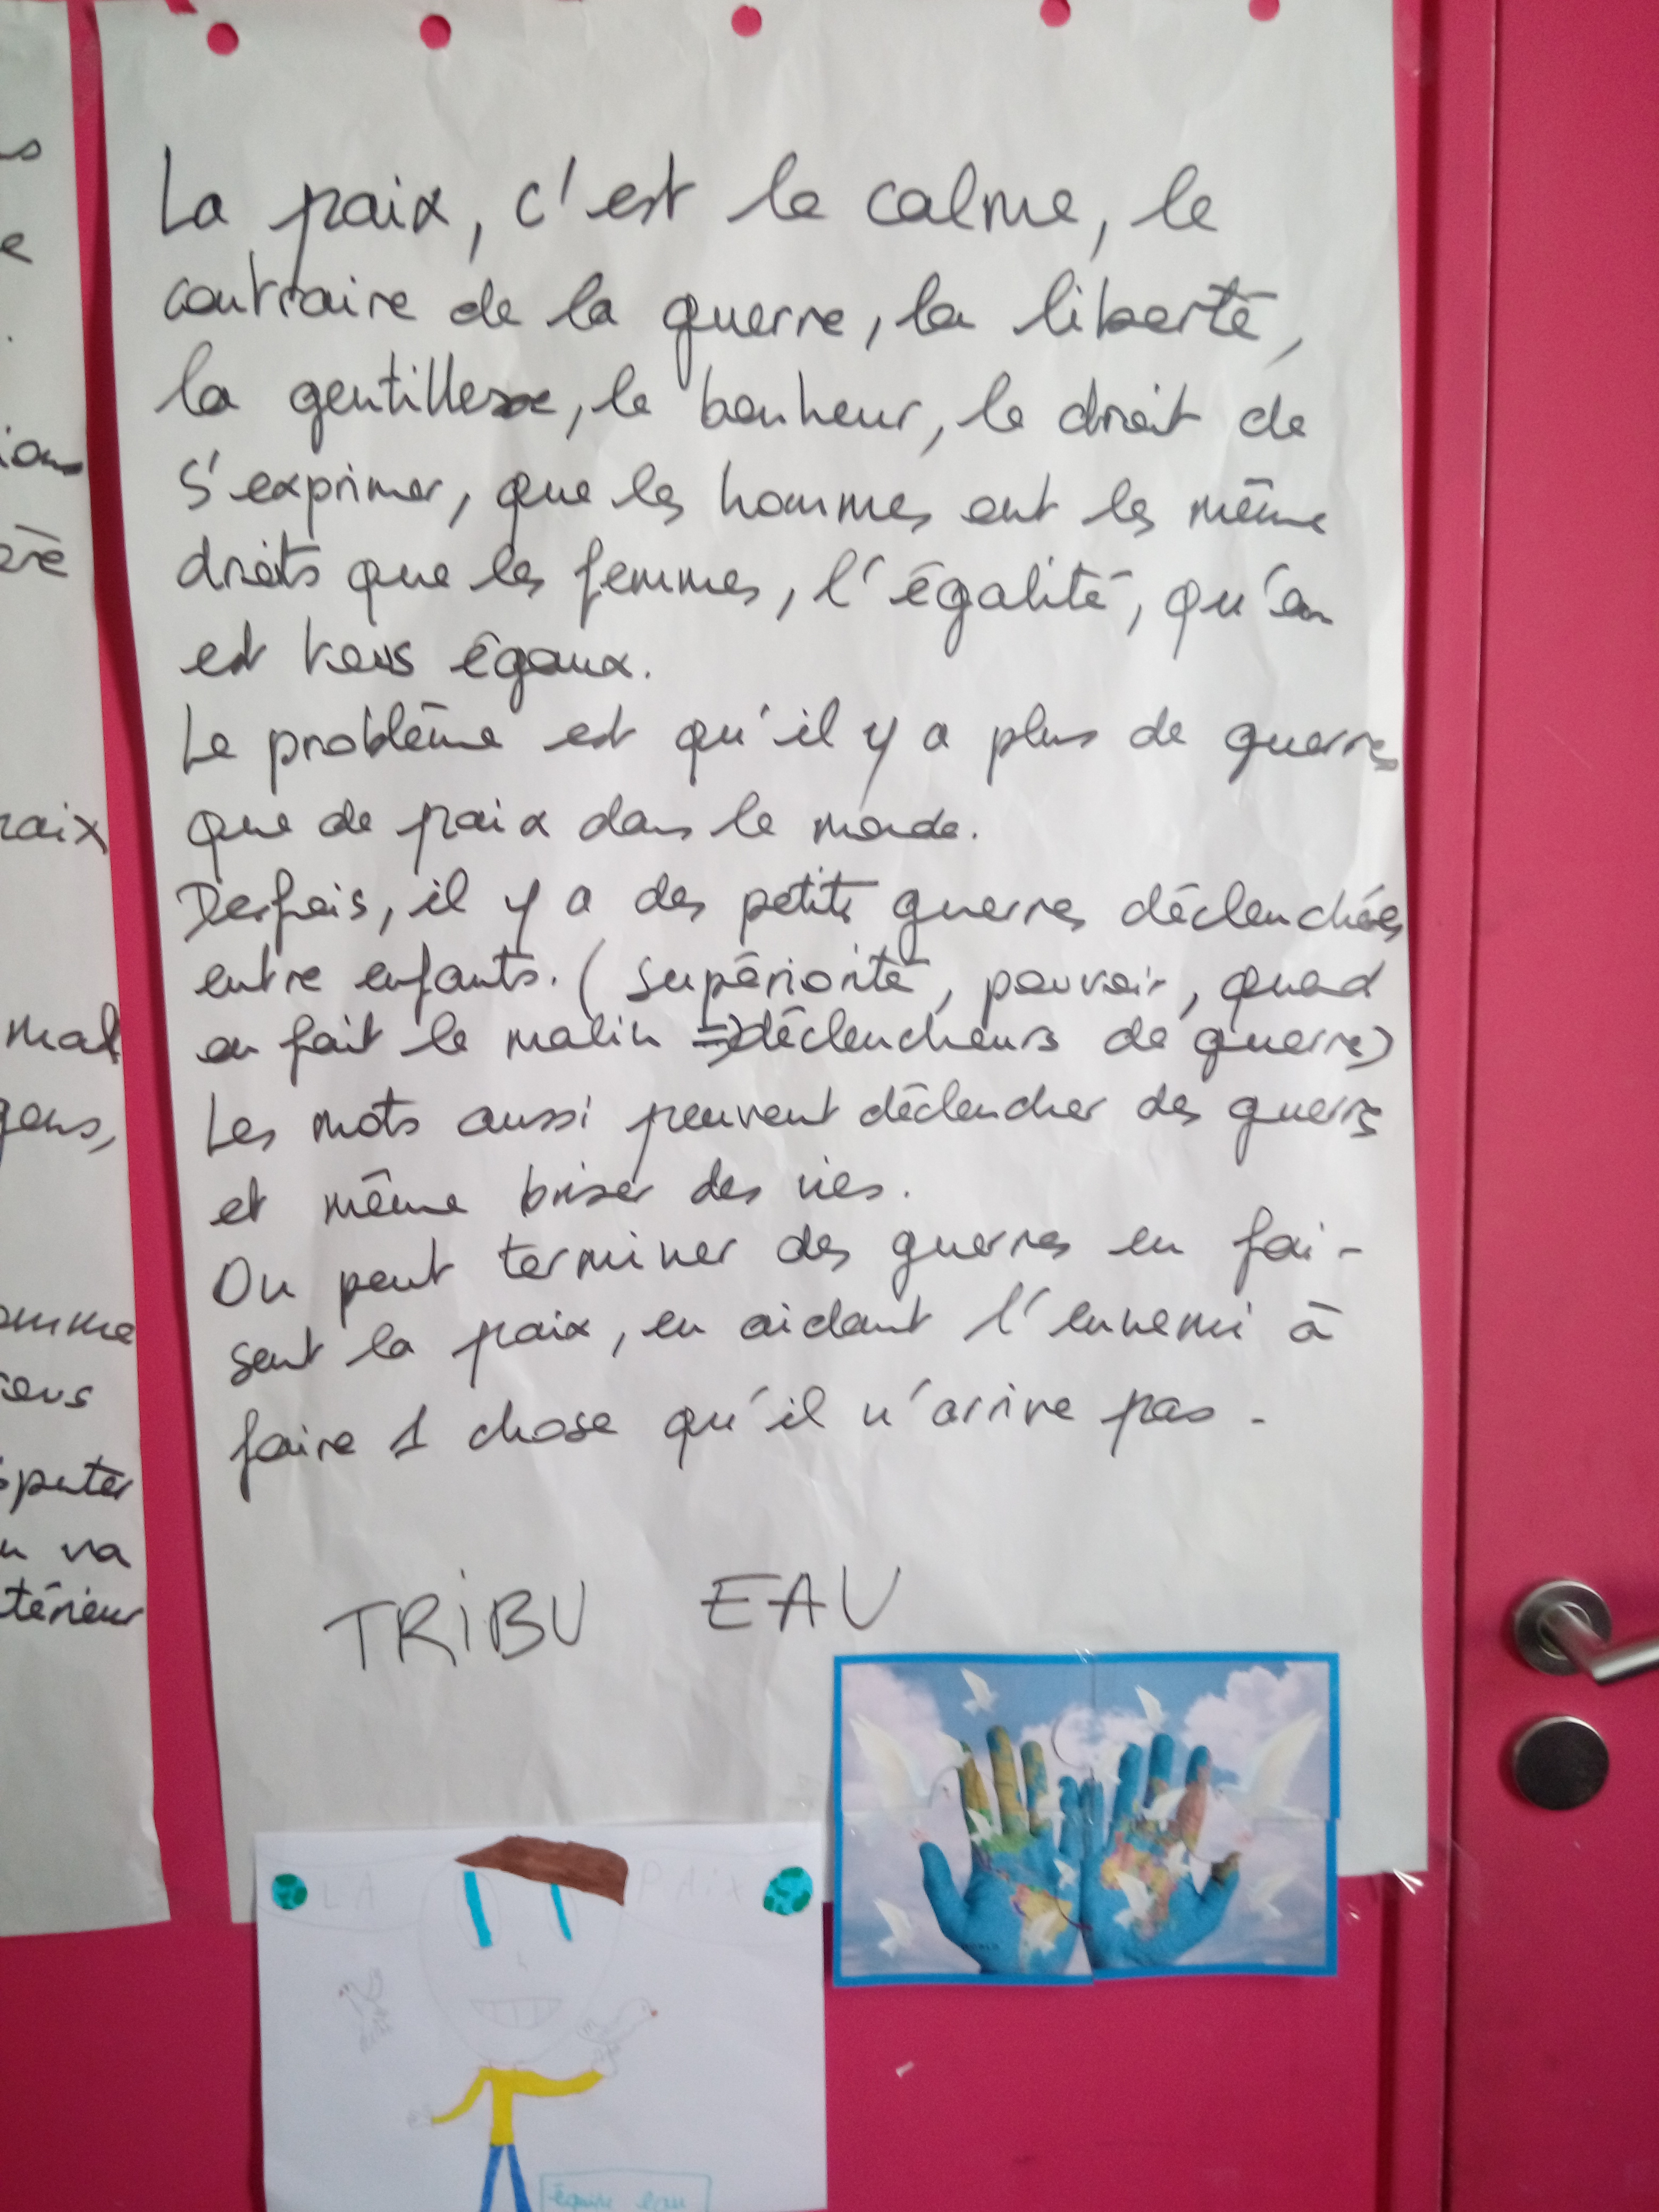 La paix, c'est le calme, le
contraire de la guerre, la liberté,
la gentillesse, le bonheur, le droit de
s'exprimer, que les hommes ont les même
droits que les femmes, l'égalité, qu'on
est tous égaux.
Le problème est qu'il y a plus de guerres
que de paix dans le monde.
Desfois, il y a des petits guerres déclenchées
entre enfants. (supériorité, pouvoir, quand
on fait le malin => déclencheurs de guerres)
Les mots aussi peuvent déclencher des guerres
et même briser des vies.
On peut terminer des guerres en fai-
sant la paix, en aidant l'ennemi à
faire 1 chose qu'il n'arrive pas.
TRIBU EAU
LA PAIX
équipe eau
mal
gens,
sputer
va
térieur